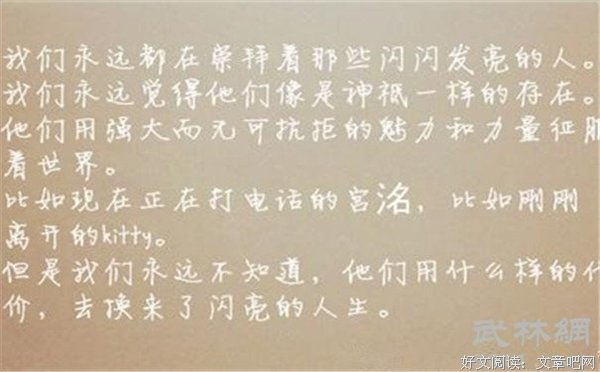 我们永远都在崇拜着那些闪闪发亮的人。
我们永远觉得他们像是神祗一样的存在。
他们用强大而无可抗拒的魅力和力量征服
着世界。
比如现在正在打电话的宫洺，比如刚刚
离开的kitty。
但是我们永远不知道，他们用什么样的代
价，去换来了闪亮的人生。
武林網
好文阅读：文章吧网